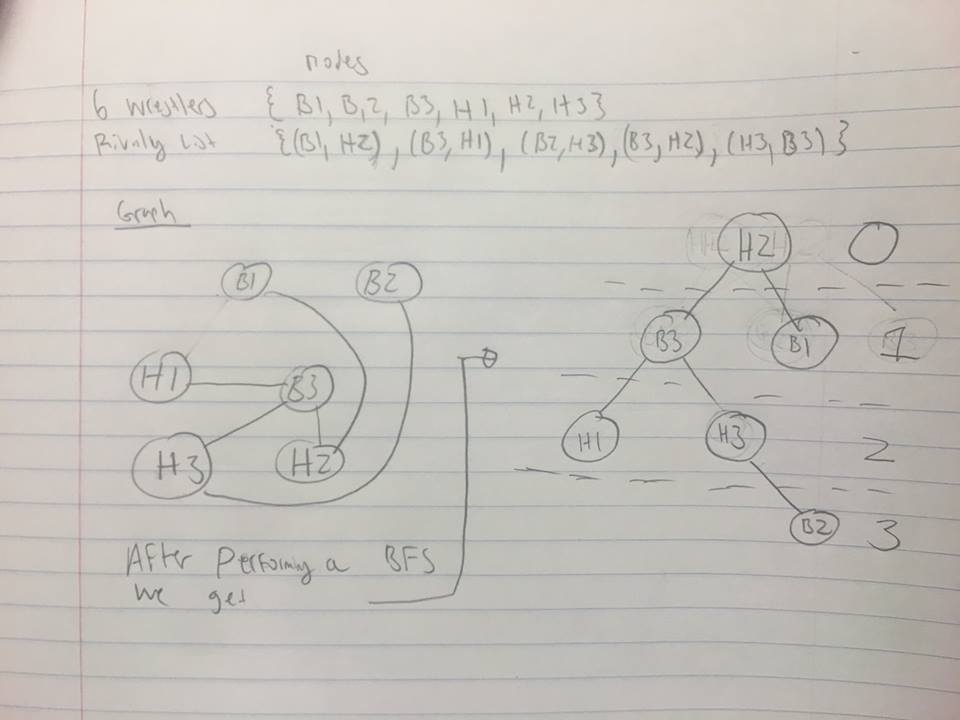 nodes
6 Wrestlers { B1, B,2, B3, H1, H2, H3}
Rivalry List {(B1, H2), (B3, H1), (B2, H3), (B3, H2), (H3, B3) }
Graph
B1 B2
H1 B3
H3 H2
After Performing a BFS
we get
H2 0
B3 B1 1
H1 H3 2
B2 3